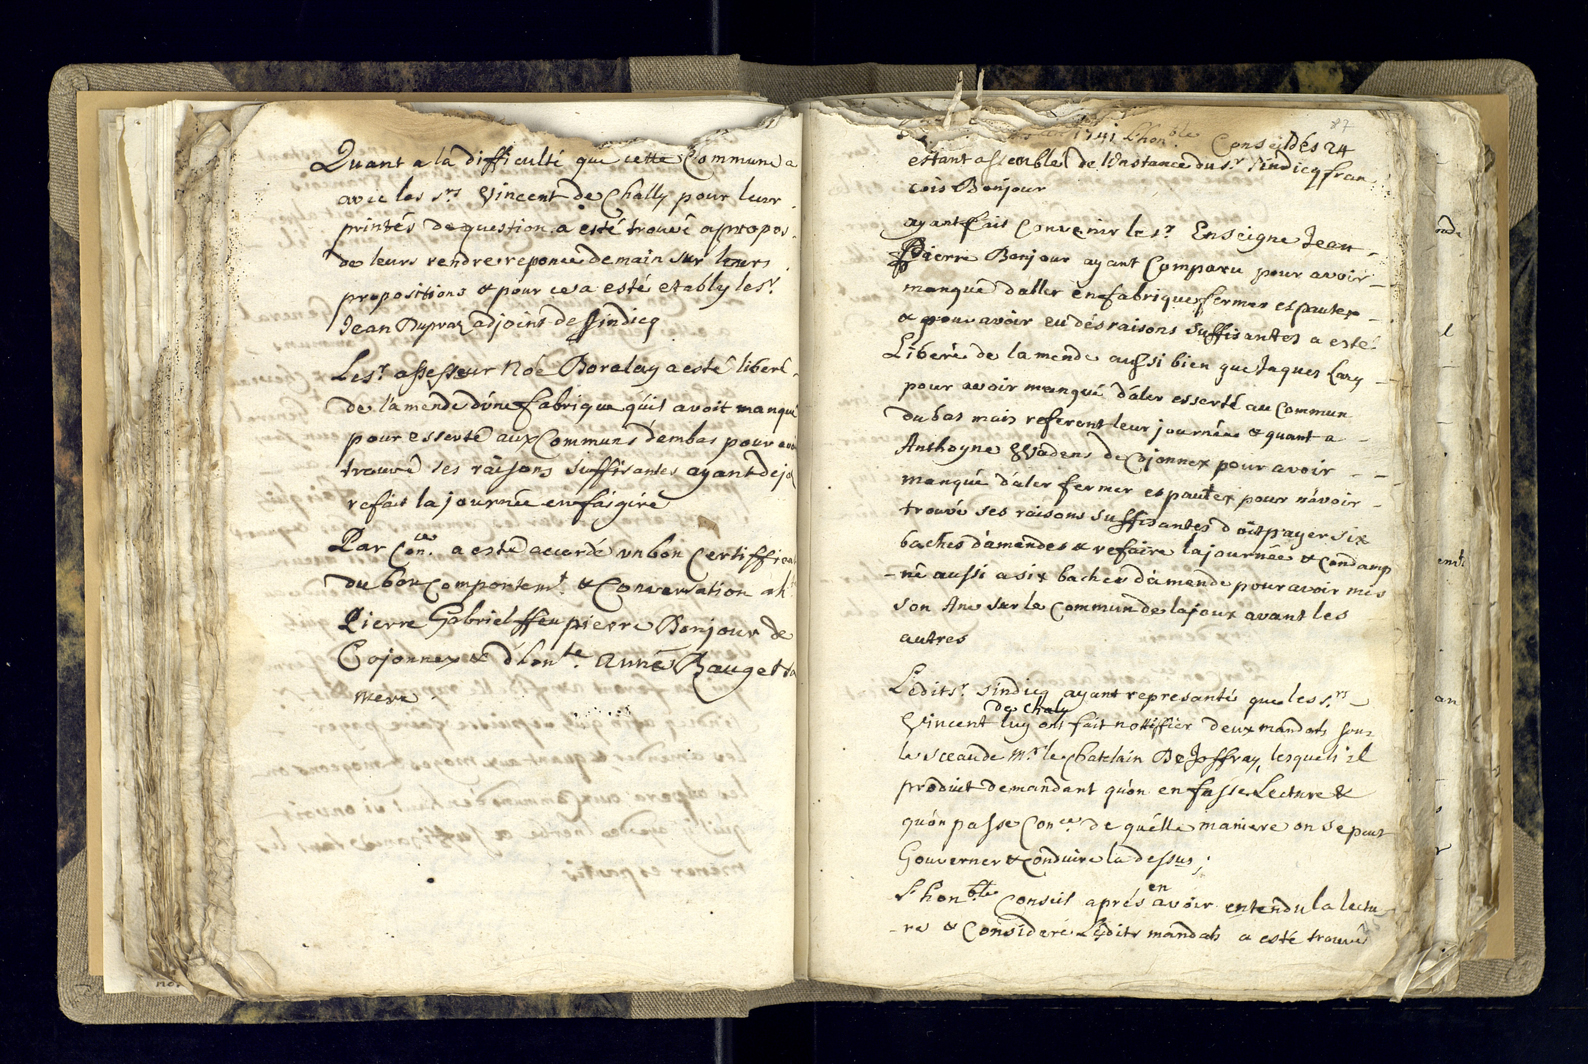 Quant a la difficulté que cette Commune a
avec les srs Vincent de Chally pour leur
printés de question a esté trouvé a propos
de leurs rendre reponce demain sur leurs
propositions & pour ce a esté etably le sr
Jean Dupraz adjoint de Sindicq
Le sr assesseur Noé Boralay a esté liberé
de l'amende d'une fabrique qu'il avoit manqué
pour esserté aux Communs d'embas pour
trouvé ses raisons suffisantes ayant deja
refait la journée en fascine
Par Conce a esté accordé un bon Certifficat
du bon Comportemt & Conversation a h
Pierre Gabriel ffeu pierre Bonjour de
Cojonnex & d'honte Anné Bauget sa
mere
87
1741 l'honble Conseil dès 24
estant assemblés de l'Instance du sr Sindicq fran
cois Bonjour
ayant fait Convenir le sr Enseigne Jean
Pierre Bonjour ayant Comparu pour avoir
manqué d'aller en fabrique fermer es pautex
& pour avoir eu dés raisons suffisantes a esté
Liberé de lamende aussi bien que Jaques Lavy
pour avoir manqué d'aler esserté au Commun
du bas mais referont leur journées & quant a
Anthoyne Wadens de Cojonnex pour avoir
manqué d'aler fermer es pautex pour n'avoir
trouvé ses raisons suffisantes doit payer six
baches d'amendes & refaire la journée & Condamp
-né aussi a six baches d'amende pour avoir mis
son Ane sur le Commun de la joux avant les
autres
Ledit sr sindicq ayant represanté que les srs
de Chaly
Vincent luy ont fait nottiffier deux mandats sous
le sceau de Mr le Chatelain De Joffray, lesquels il
produit demandant qu'on en fasse Lecture &
qu'on passe Conce de quelle maniere on se peut
Gouverner & Conduire la dessus;
L'honble Conseil aprés en avoir entendu la lectu
-re & Consideré Lédits mandats a esté trouvé